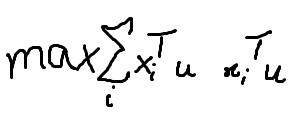 max ∑_i x_i^T u x_i^T u